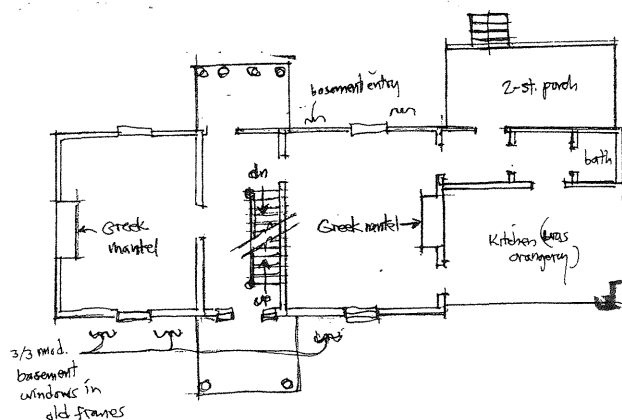 basement entry
2-st. porch
bath
dn
Greek
mantel
Greek mantel
Kitchen (was
orangery)
up
3/3 mod.
basement
windows in
old frames